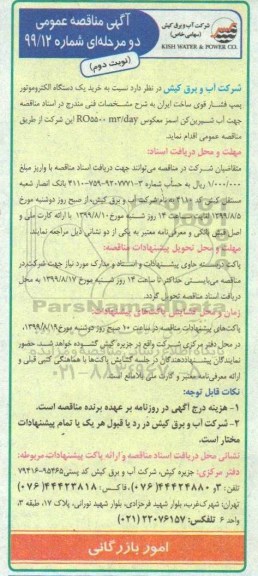 شرکت آب و برق کیش
(سهامی خاص)
KISH WATER & POWER CO.
آگهی مناقصه عمومی
دو مرحله‌ای شماره ۹۹/۱۲
(نوبت دوم)
شرکت آب و برق کیش در نظر دارد نسبت به خرید یک دستگاه الکتروموتور
پمپ فشار قوی ساخت ایران به شرح مشخصات فنی مندرج در اسناد مناقصه
جهت آب شیرین‌کن اسمز معکوس RO۵۵۰۰ m۳/day این شرکت از طریق
مناقصه عمومی اقدام نماید.
مهلت و محل دریافت اسناد:
متقاضیان شرکت در مناقصه می‌توانند جهت دریافت اسناد مناقصه با واریز مبلغ
۱/۰۰۰/۰۰۰ ریال به حساب شماره ۲-۹۲۰۷۷۷۱-۷۵۹-۴۱۱۰ بانک انصار شعبه
کیش کد ۴۱۱۰ به نام شرکت آب و برق کیش، از صبح روز دوشنبه مورخ
۱۳۹۹/۸/۵ ساعت ۱۴ روز شنبه مورخ ۱۳۹۹/۸/۱۰ با ارائه کارت ملی و
اصل فیش بانکی و معرفی‌نامه معتبر به یکی از دو نشانی ذیل مراجعه نمایند.
مهلت و محل تحویل پیشنهادات مناقصه:
پاکت دربسته حاوی پیشنهادات و اسناد و مدارک مورد نیاز جهت شرکت در
مناقصه می‌بایستی حداکثر تا ساعت ۱۴ روز شنبه مورخ ۱۳۹۹/۸/۱۷ به محل
دریافت اسناد مناقصه تحویل گردد.
زمان و محل گشایش پاکت‌های پیشنهادات:
پاکت‌های پیشنهادات مناقصه در ساعت ۱۰ صبح روز دوشنبه مورخ ۱۳۹۹/۸/۱۹
در محل دفتر مرکزی شرکت واقع در جزیره کیش گشوده خواهد شد. حضور
نمایندگان پیشنهاددهندگان در جلسه گشایش پاکت‌ها با هماهنگی کتبی قبلی و
ارائه معرفی‌نامه معتبر و کارت ملی بلامانع است.
نکات قابل توجه:
۱- هزینه درج آگهی در روزنامه بر عهده برنده مناقصه است.
۲- شرکت آب و برق کیش در رد یا قبول هر یک یا تمام پیشنهادات
مختار است.
نشانی محل دریافت اسناد مناقصه و ارائه پاکت پیشنهادات مربوطه:
دفتر مرکزی: جزیره کیش، شرکت آب و برق کیش کد پستی ۹۵۴۶۵-۷۹۴۱۶
تلفن: ۳و ۴۴۴۲۴۸۸۰ (۰۷۶)، فاکس: ۴۴۴۲۳۸۱۸ (۰۷۶)
تهران: شهرک غرب، بلوار شهید فرحزادی، بلوار شهید نورانی، پلاک ۱۷، طبقه ۳،
واحد ۶ تلفکس: ۲۲۰۷۶۱۵۷ (۰۲۱)
امور بازرگانی
ParsNamadData
۰۲۱-۸۸۳۴۹۶۷۰